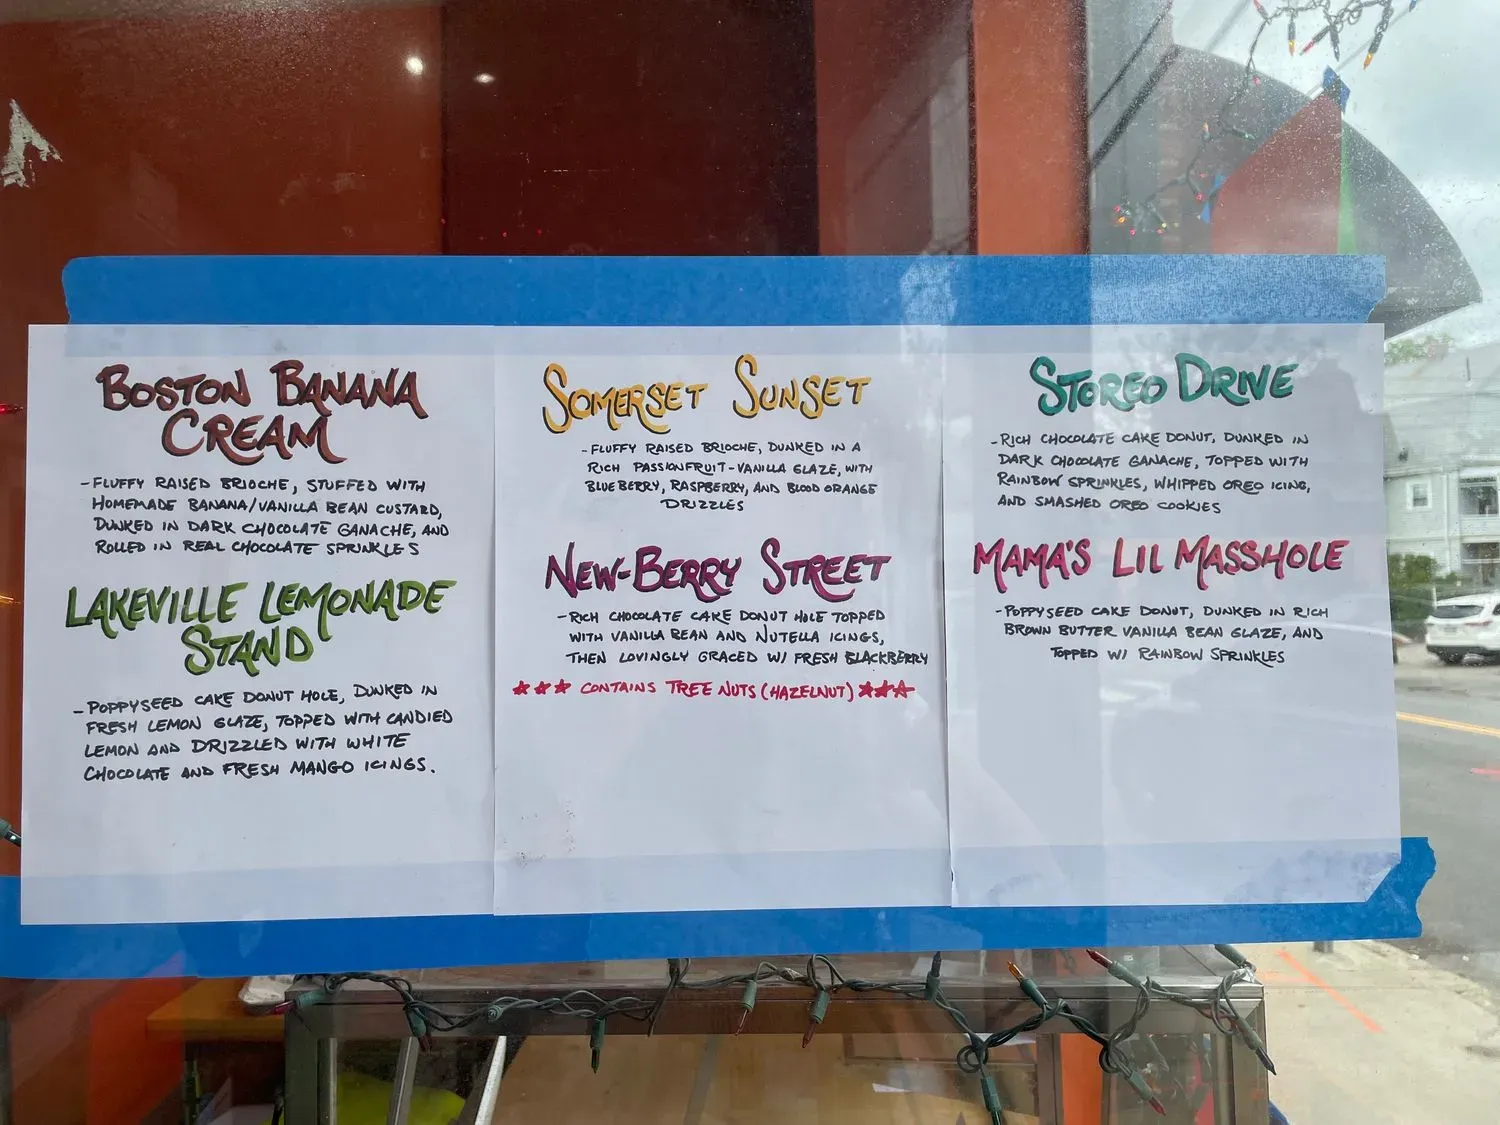 BOSTON BANANA
CREAM
- FLUFFY RAISED BRIOCHE, STUFFED WITH
HOMEMADE BANANA/VANILLA BEAN CUSTARD,
DUNKED IN DARK CHOCOLATE GANACHE, AND
ROLLED IN REAL CHOCOLATE SPRINKLES
LAKEVILLE LEMONADE
STAND
- POPPYSEED CAKE DONUT HOLE, DUNKED IN
FRESH LEMON GLAZE, TOPPED WITH CANDIED
LEMON AND DRIZZLED WITH WHITE
CHOCOLATE AND FRESH MANGO ICINGS.
SOMERSET SUNSET
- FLUFFY RAISED BRIOCHE, DUNKED IN A
RICH PASSIONFRUIT-VANILLA GLAZE, WITH
BLUEBERRY, RASPBERRY, AND BLOOD ORANGE
DRIZZLES
NEW-BERRY STREET
- RICH CHOCOLATE CAKE DONUT HOLE TOPPED
WITH VANILLA BEAN AND NUTELLA ICINGS,
THEN LOVINGLY GRACED W/ FRESH BLACKBERRY
★★★ CONTAINS TREE NUTS (HAZELNUT) ★★★
STOREO DRIVE
- RICH CHOCOLATE CAKE DONUT, DUNKED IN
DARK CHOCOLATE GANACHE, TOPPED WITH
RAINBOW SPRINKLES, WHIPPED OREO ICING,
AND SMASHED OREO COOKIES
MAMA'S LIL MASSHOLE
- POPPYSEED CAKE DONUT, DUNKED IN RICH
BROWN BUTTER VANILLA BEAN GLAZE, AND
TOPPED W/ RAINBOW SPRINKLES